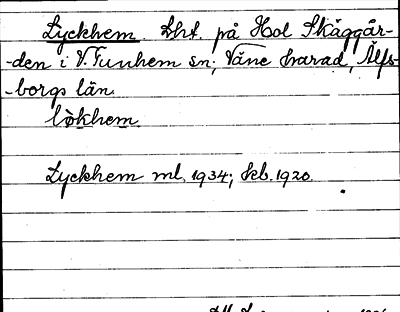 Lyckhem. Lht. på Hol Skåggår-
-den i V. Tunhem sn; Väne härad, Älfs-
-borgs län.
lỳkhem.
Lyckhem ml. 1934; kb. 1920.